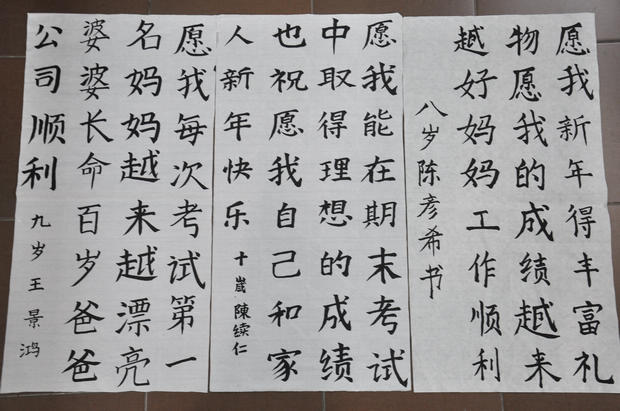 愿我新年得丰富礼
物愿我的成绩越来
越好妈妈工作顺利
八岁陈彦希书
愿我能在期末考试
中取得理想的成绩
也祝愿我自己和家
人新年快乐 十歲陳续仁
愿我每次考试第一
名妈妈越来越漂亮
婆婆长命百岁爸爸
公司顺利 九岁王景鸿